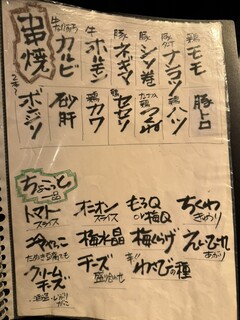 串焼
鶏 モモ
ナンコツ
豚 シソ巻
豚 ネギマ
牛 ホルモン
牛 カルビ
豚トロ
鶏 ハツ
つくね
セセリ
鶏 カワ
砂肝
ボンジリ
ちょこっと一品
ちくわ
きゅうり
もろQ
or 梅Q
オニオン
スライス
トマト
スライス
えいひれ
梅くらげ
梅水晶
冷やっこ
わさびの種
チーズ
盛り合わせ
クリーム
チーズ